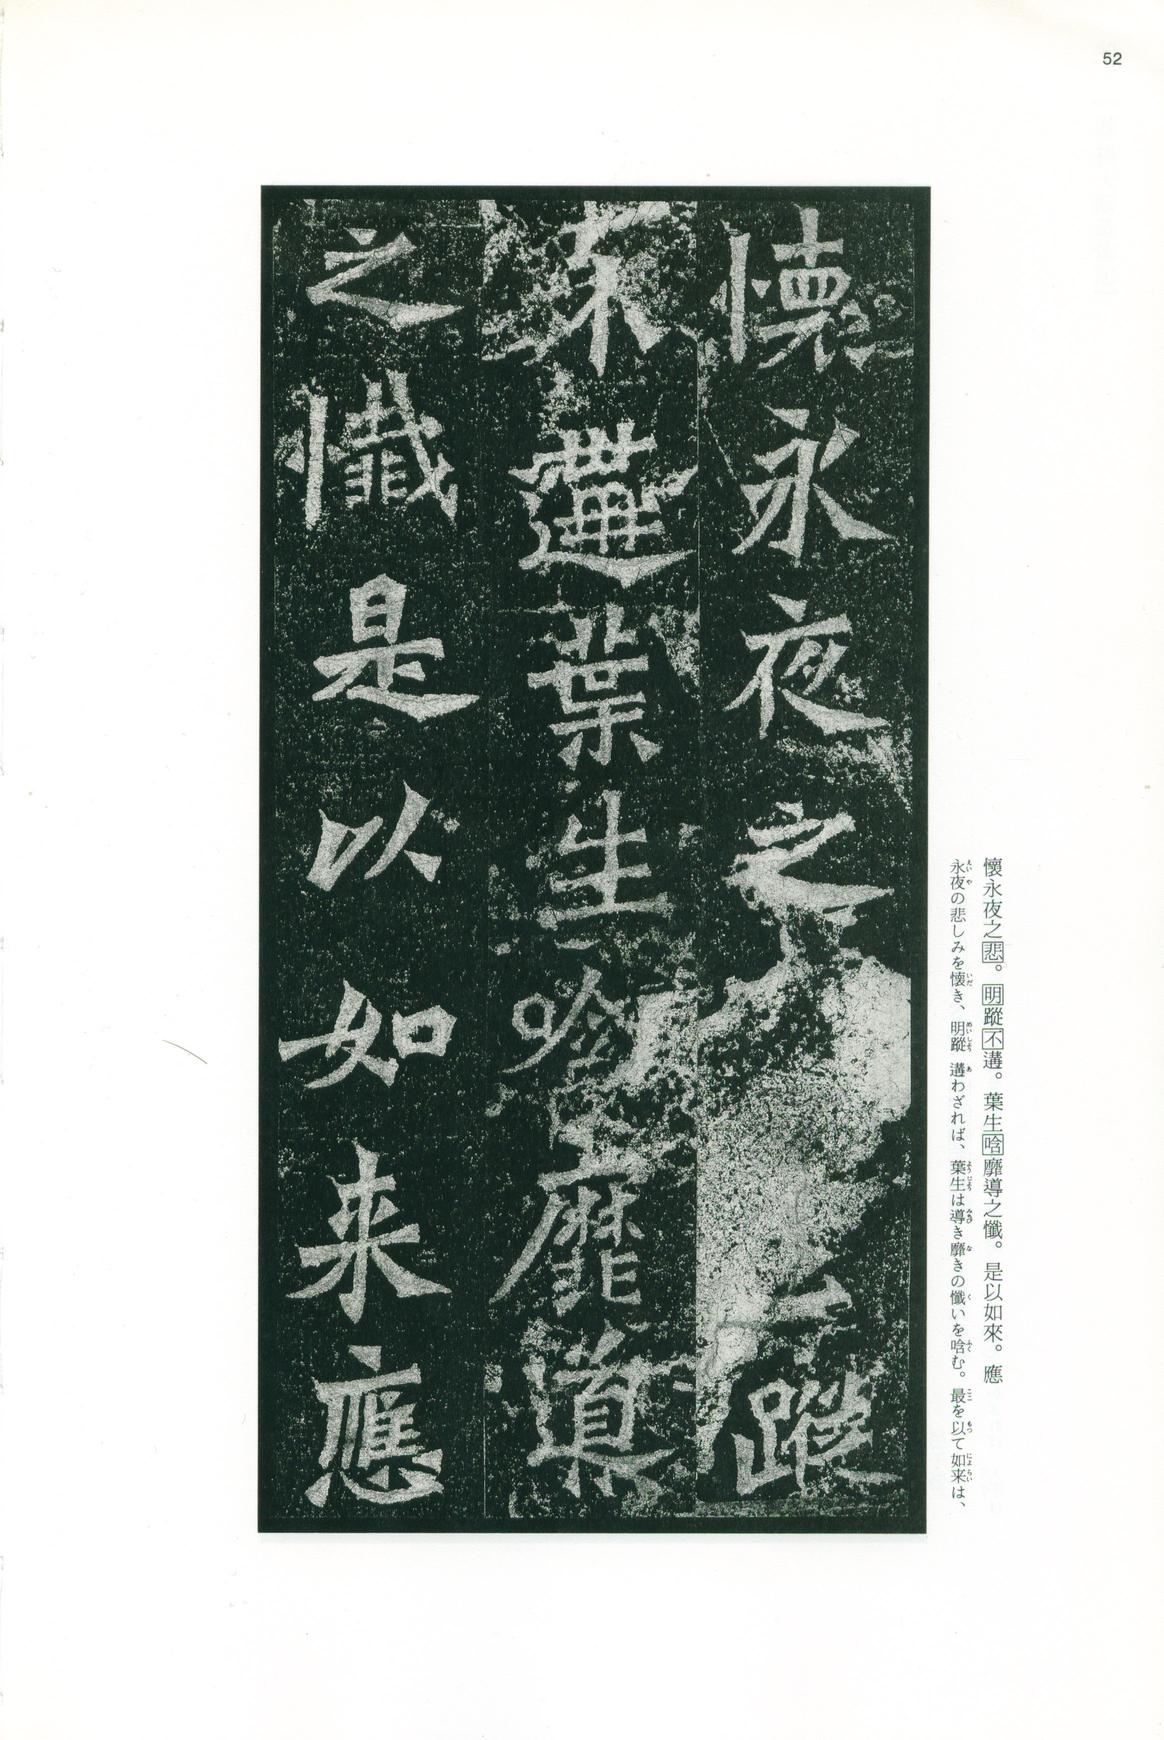 52
懷永夜之悲。明蹤不遘。葉生唅靡導之懺。是以如來。應
永夜の悲しみを懐き、明蹤遘わざれば、葉生は導き靡きの懺いを唅む。最を以て如来は、
懷永夜之蹤
不遘葉生唅靡導
之懺是以如来應